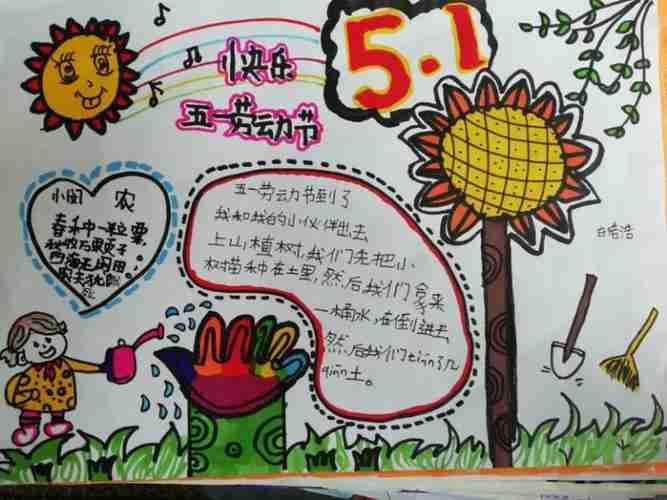 5.1
快乐
五一劳动节
小闵 农
春种一粒粟,
秋收万颗子
四海无闲田
农夫犹
死
五一劳动节到了
我和我的小伙伴出去
上山植树,我们先把小
树苗种在土里,然后我们拿来
一桶水,在倒进去
然后我们tiān了几
qiān土。
白皓浩